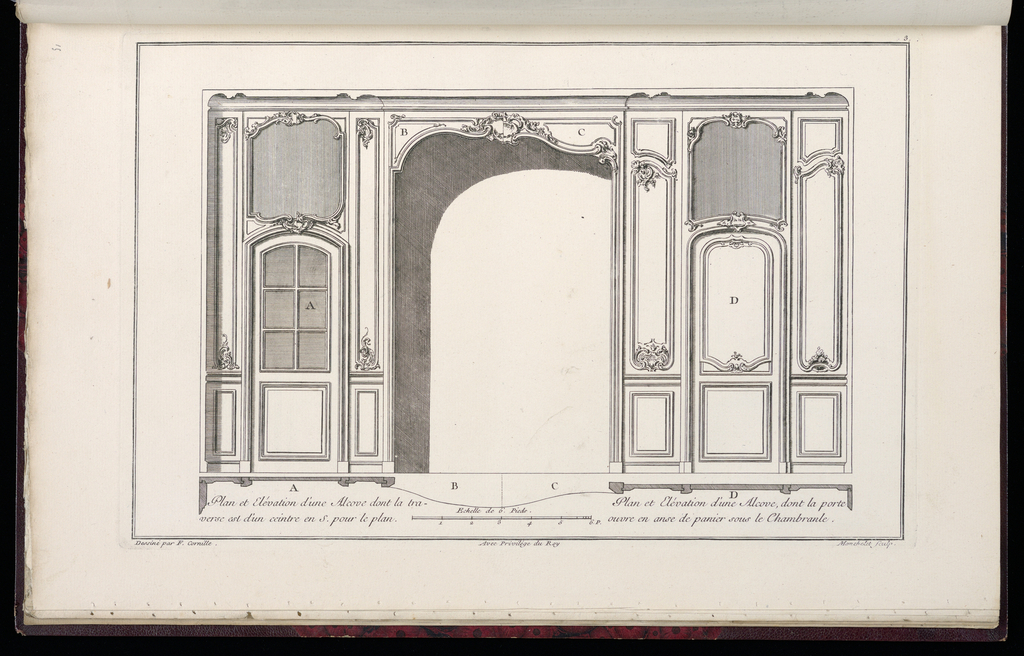 3.
15
B
C
A
D
A
B
C
D
Plan et Elévation d'une Alcove dont la tra-
verse est d'un ceintre en S. pour le plan.
Echelle de 6. Pieds.
1 2 3 4 5 6.P.
Plan et Elévation d'une Alcove, dont la porte
ouvre en anse de panier sous le Chambranle.
Dessiné par F. Cornille.
Avec Privilége du Roy
Marchelit Sculp